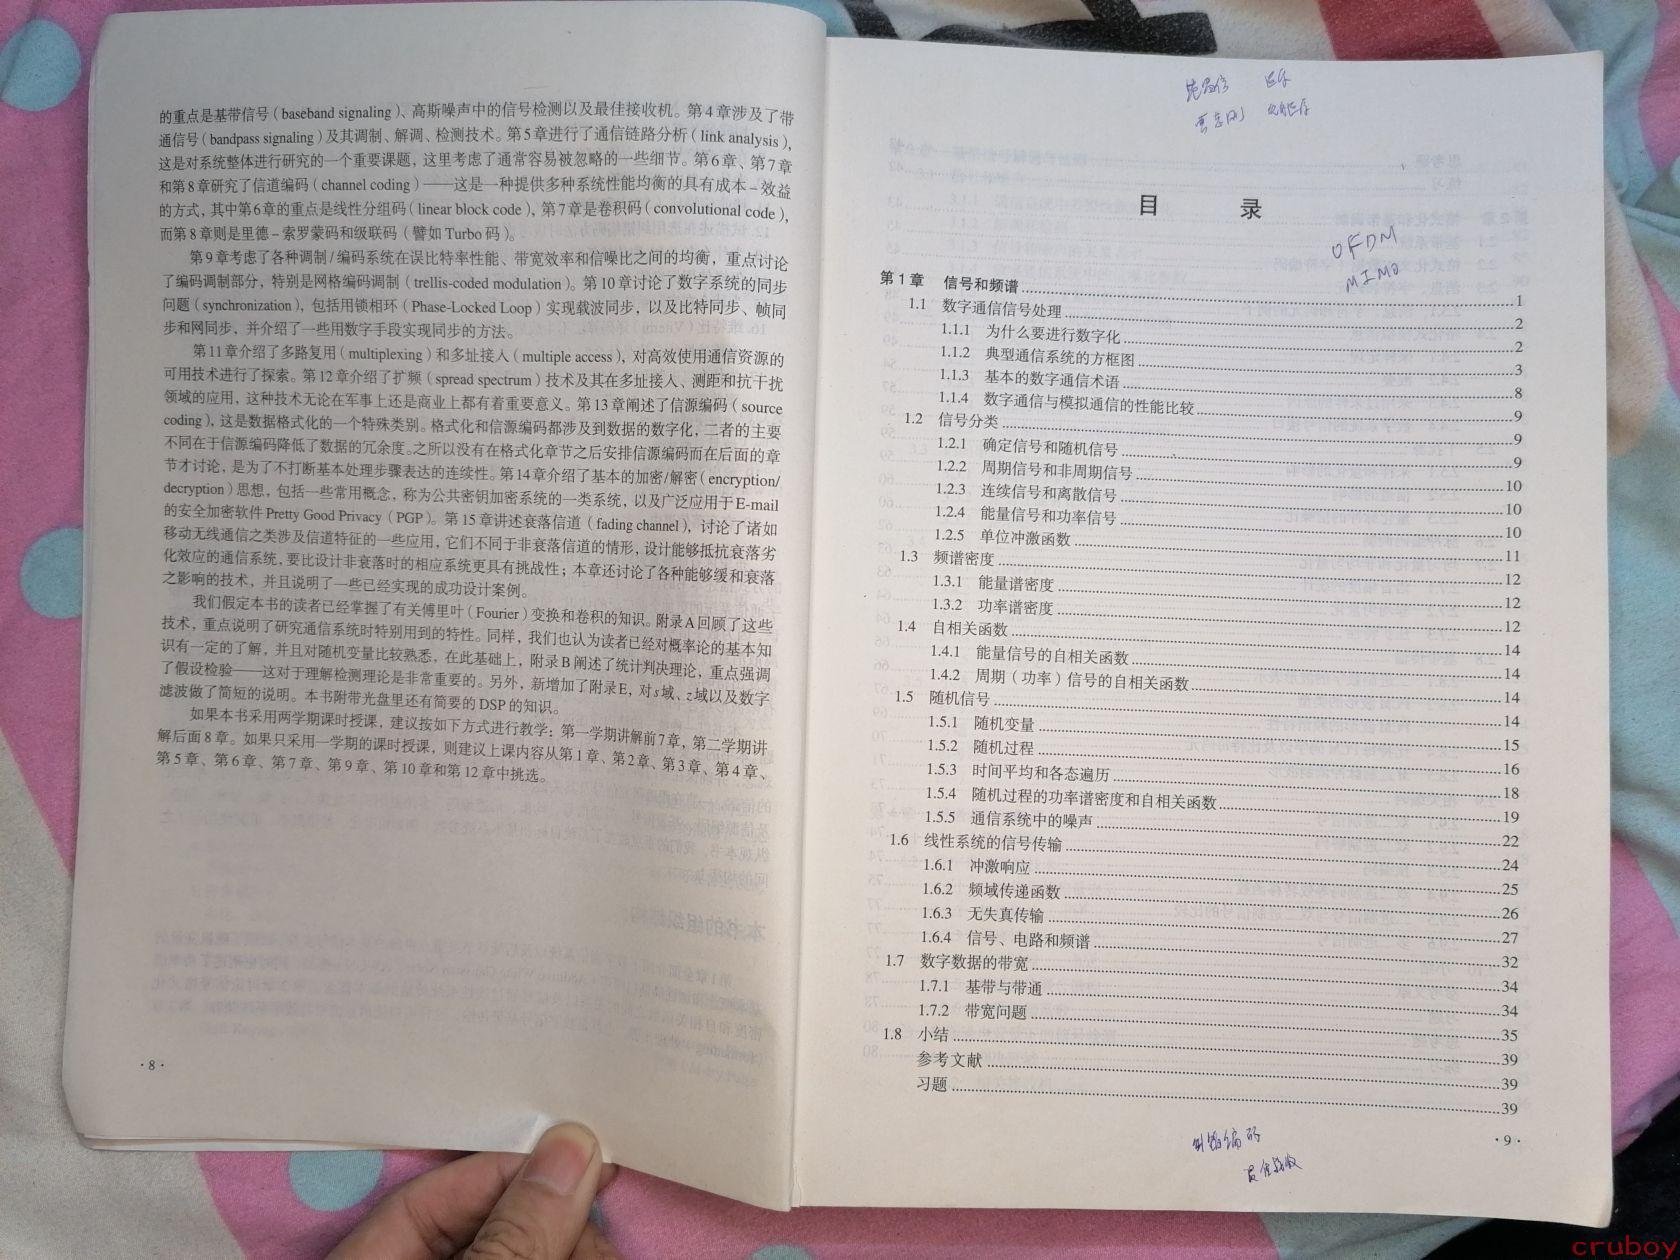 的重点是基带信号（baseband signaling）、高斯噪声中的信号检测以及最佳接收机。第4章涉及了带
通信号（bandpass signaling）及其调制、解调、检测技术。第5章进行了通信链路分析（link analysis），
这是对系统整体进行研究的一个重要课题，这里考虑了通常容易被忽略的一些细节。第6章、第7章
和第8章研究了信道编码（channel coding）——这是一种提供多种系统性能均衡的具有成本－效益
的方式，其中第6章的重点是线性分组码（linear block code），第7章是卷积码（convolutional code），
而第8章则是里德－索罗蒙码和级联码（譬如Turbo码）。
第9章考虑了各种调制/编码系统在误比特率性能、带宽效率和信噪比之间的均衡，重点讨论
了编码调制部分，特别是网格编码调制（trellis-coded modulation）。第10章讨论了数字系统的同步
问题（synchronization），包括用锁相环（Phase-Locked Loop）实现载波同步，以及比特同步、帧同
步和网同步，并介绍了一些用数字手段实现同步的方法。
第11章介绍了多路复用（multiplexing）和多址接入（multiple access），对高效使用通信资源的
可用技术进行了探索。第12章介绍了扩频（spread spectrum）技术及其在多址接入、测距和抗干扰
领域的应用，这种技术无论在军事上还是商业上都有着重要意义。第13章阐述了信源编码（source
coding），这是数据格式化的一个特殊类别。格式化和信源编码都涉及到数据的数字化，二者的主要
不同在于信源编码降低了数据的冗余度。之所以没有在格式化章节之后安排信源编码而在后面的章
节才讨论，是为了不打断基本处理步骤表达的连续性。第14章介绍了基本的加密/解密（encryption/
decryption）思想，包括一些常用概念，称为公共密钥加密系统的一类系统，以及广泛应用于E-mail
的安全加密软件Pretty Good Privacy（PGP）。第15章讲述衰落信道（fading channel），讨论了诸如
移动无线通信之类涉及信道特征的一些应用，它们不同于非衰落信道的情形，设计能够抵抗衰落劣
化效应的通信系统，要比设计非衰落时的相应系统更具有挑战性；本章还讨论了各种能够缓和衰落
之影响的技术，并且说明了一些已经实现的成功设计案例。
我们假定本书的读者已经掌握了有关傅里叶（Fourier）变换和卷积的知识。附录A回顾了这些
技术，重点说明了研究通信系统时特别用到的特性。同样，我们也认为读者已经对概率论的基本知
识有一定的了解，并且对随机变量比较熟悉，在此基础上，附录B阐述了统计判决理论，重点强调
了假设检验——这对于理解检测理论是非常重要的。另外，新增加了附录E，对s域、z域以及数字
滤波做了简短的说明。本书附带光盘里还有简要的DSP的知识。
如果本书采用两学期课时授课，建议按如下方式进行教学：第一学期讲解前7章，第二学期讲
解后面8章。如果只采用一学期的课时授课，则建议上课内容从第1章、第2章、第3章、第4章、
第5章、第6章、第7章、第9章、第10章和第12章中挑选。
·8·
目 录
OFDM
MIMO
第1章 信号和频谱 1
1.1 数字通信信号处理 2
1.1.1 为什么要进行数字化 2
1.1.2 典型通信系统的方框图 3
1.1.3 基本的数字通信术语 8
1.1.4 数字通信与模拟通信的性能比较 9
1.2 信号分类 9
1.2.1 确定信号和随机信号 9
1.2.2 周期信号和非周期信号 10
1.2.3 连续信号和离散信号 10
1.2.4 能量信号和功率信号 10
1.2.5 单位冲激函数 11
1.3 频谱密度 12
1.3.1 能量谱密度 12
1.3.2 功率谱密度 12
1.4 自相关函数 14
1.4.1 能量信号的自相关函数 14
1.4.2 周期（功率）信号的自相关函数 14
1.5 随机信号 14
1.5.1 随机变量 15
1.5.2 随机过程 16
1.5.3 时间平均和各态遍历 18
1.5.4 随机过程的功率谱密度和自相关函数 19
1.5.5 通信系统中的噪声 22
1.6 线性系统的信号传输 24
1.6.1 冲激响应 25
1.6.2 频域传递函数 26
1.6.3 无失真传输 27
1.6.4 信号、电路和频谱 32
1.7 数字数据的带宽 34
1.7.1 基带与带通 34
1.7.2 带宽问题 35
1.8 小结 39
参考文献 39
习题 39
·9·
cruboy